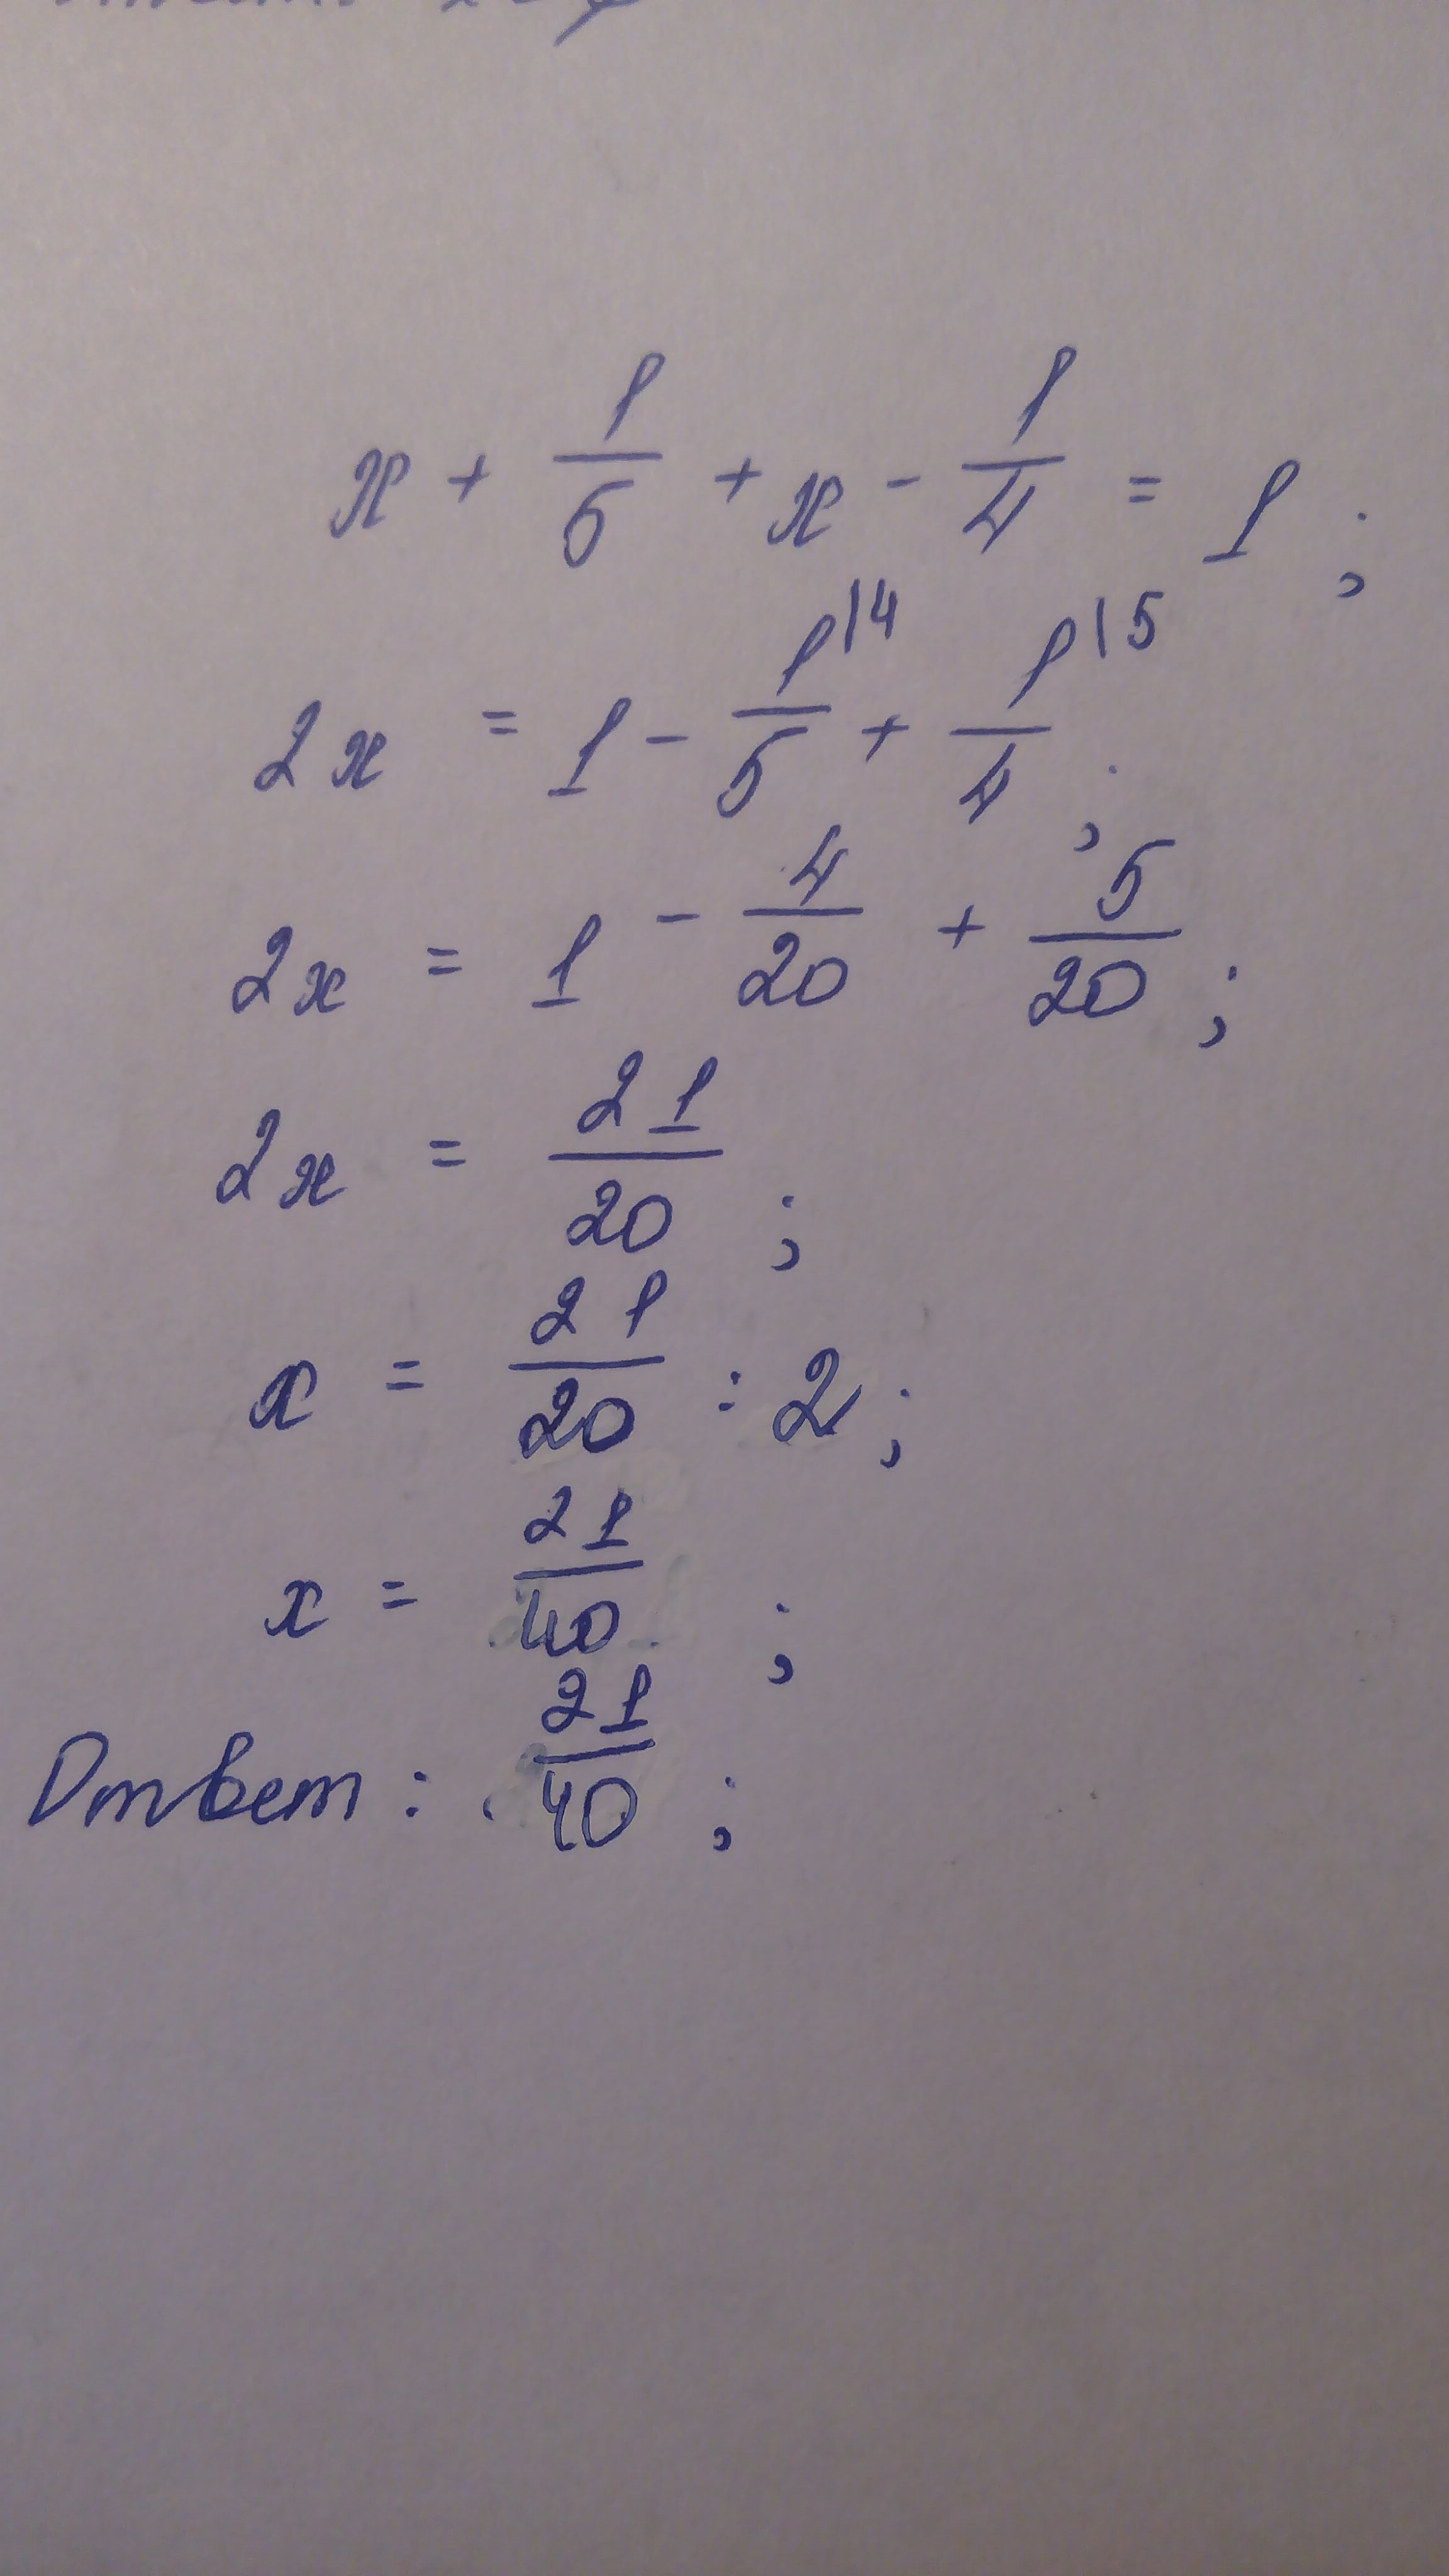 x + 1/5 + x - 1/4 = 1 ;
2x = 1 - 1/5 |4 + 1/4 |5 ;
2x = 1 - 4/20 + 5/20 ;
2x = 21/20 ;
x = 21/20 : 2 ;
x = 21/40 ;
Ответ : 21/40 ;